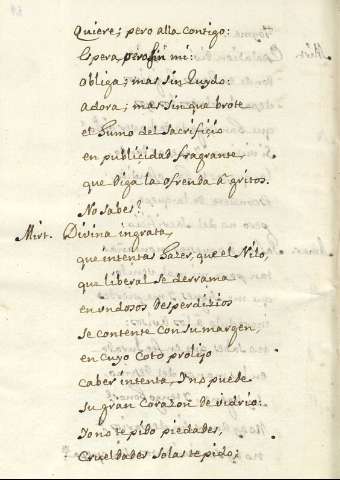 Quiere; pero alla contigo:
Espera pero sin mi:
obliga; mas sin Ruydo:
adora; mas sin que brote
el humo del sacrifiçio
en publiçidad fragrante,
que diga la ofrenda a gritos.
No sabes?
Mirt. Divina ingrata,
que intentas hazer, que el Nilo,
que liberal se derrama
en undosos desperdiзios
se contente con su margen,
en cuyo coto proligo
caber intenta, y no puede
su gran corazon de vidrio:
Yo no te pido piedades,
crueldades solas te pido;